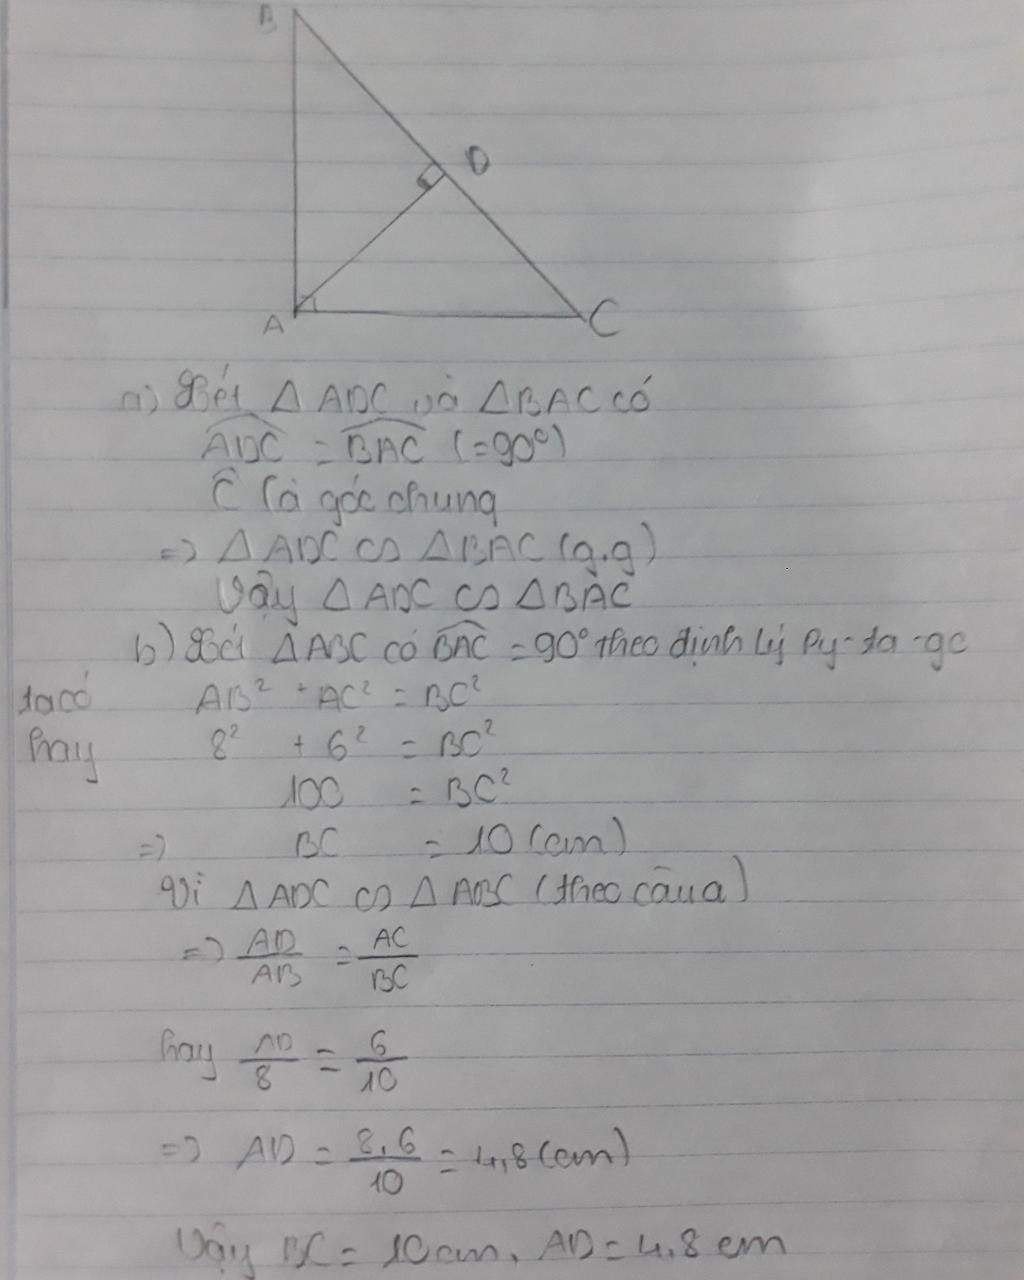 B
D
A
C
a) Xét △ ADC và △BAC có
ADC = BAC (=90°)
Ĉ là góc chung
=> △ADC ∽ △BAC (g.g)
Vậy △ADC ∽ △BAC
b) Xét △ABC có BAC = 90° theo định lý Py-ta-go
ta có AB² + AC² = BC²
hay 8² + 6² = BC²
100 = BC²
=> BC = 10 (cm)
Vì △ADC ∽ △ABC (theo câu a)
=> AD/AB = AC/BC
hay AD/8 = 6/10
=> AD = 8.6/10 = 4,8 (cm)
Vậy BC = 10 cm, AD = 4,8 cm